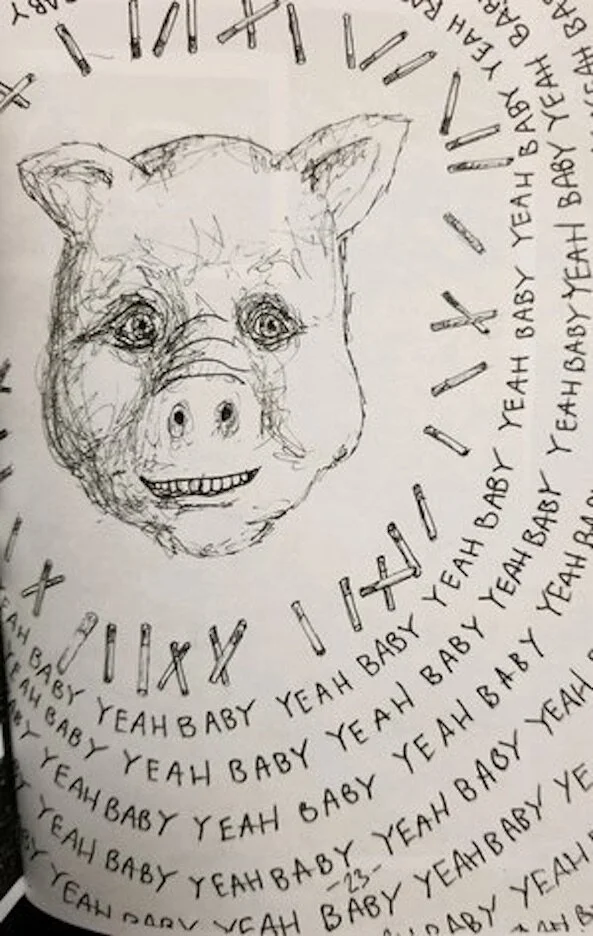 BABY
YEAH BABY YEAH BABY YEAH BABY YEAH BABY YEAH BABY YEAH BABY
BABY YEAH BABY YEAH BABY YEAH BABY YEAH BABY YEAH BABY
YEAH BABY YEAH BABY YEAH BABY YEAH
YEAH BABY YEAH BABY YEAH BABY YEAH
YEAH BABY YEAH BABY YEAH BABY YE
BABY YEAH
-23-